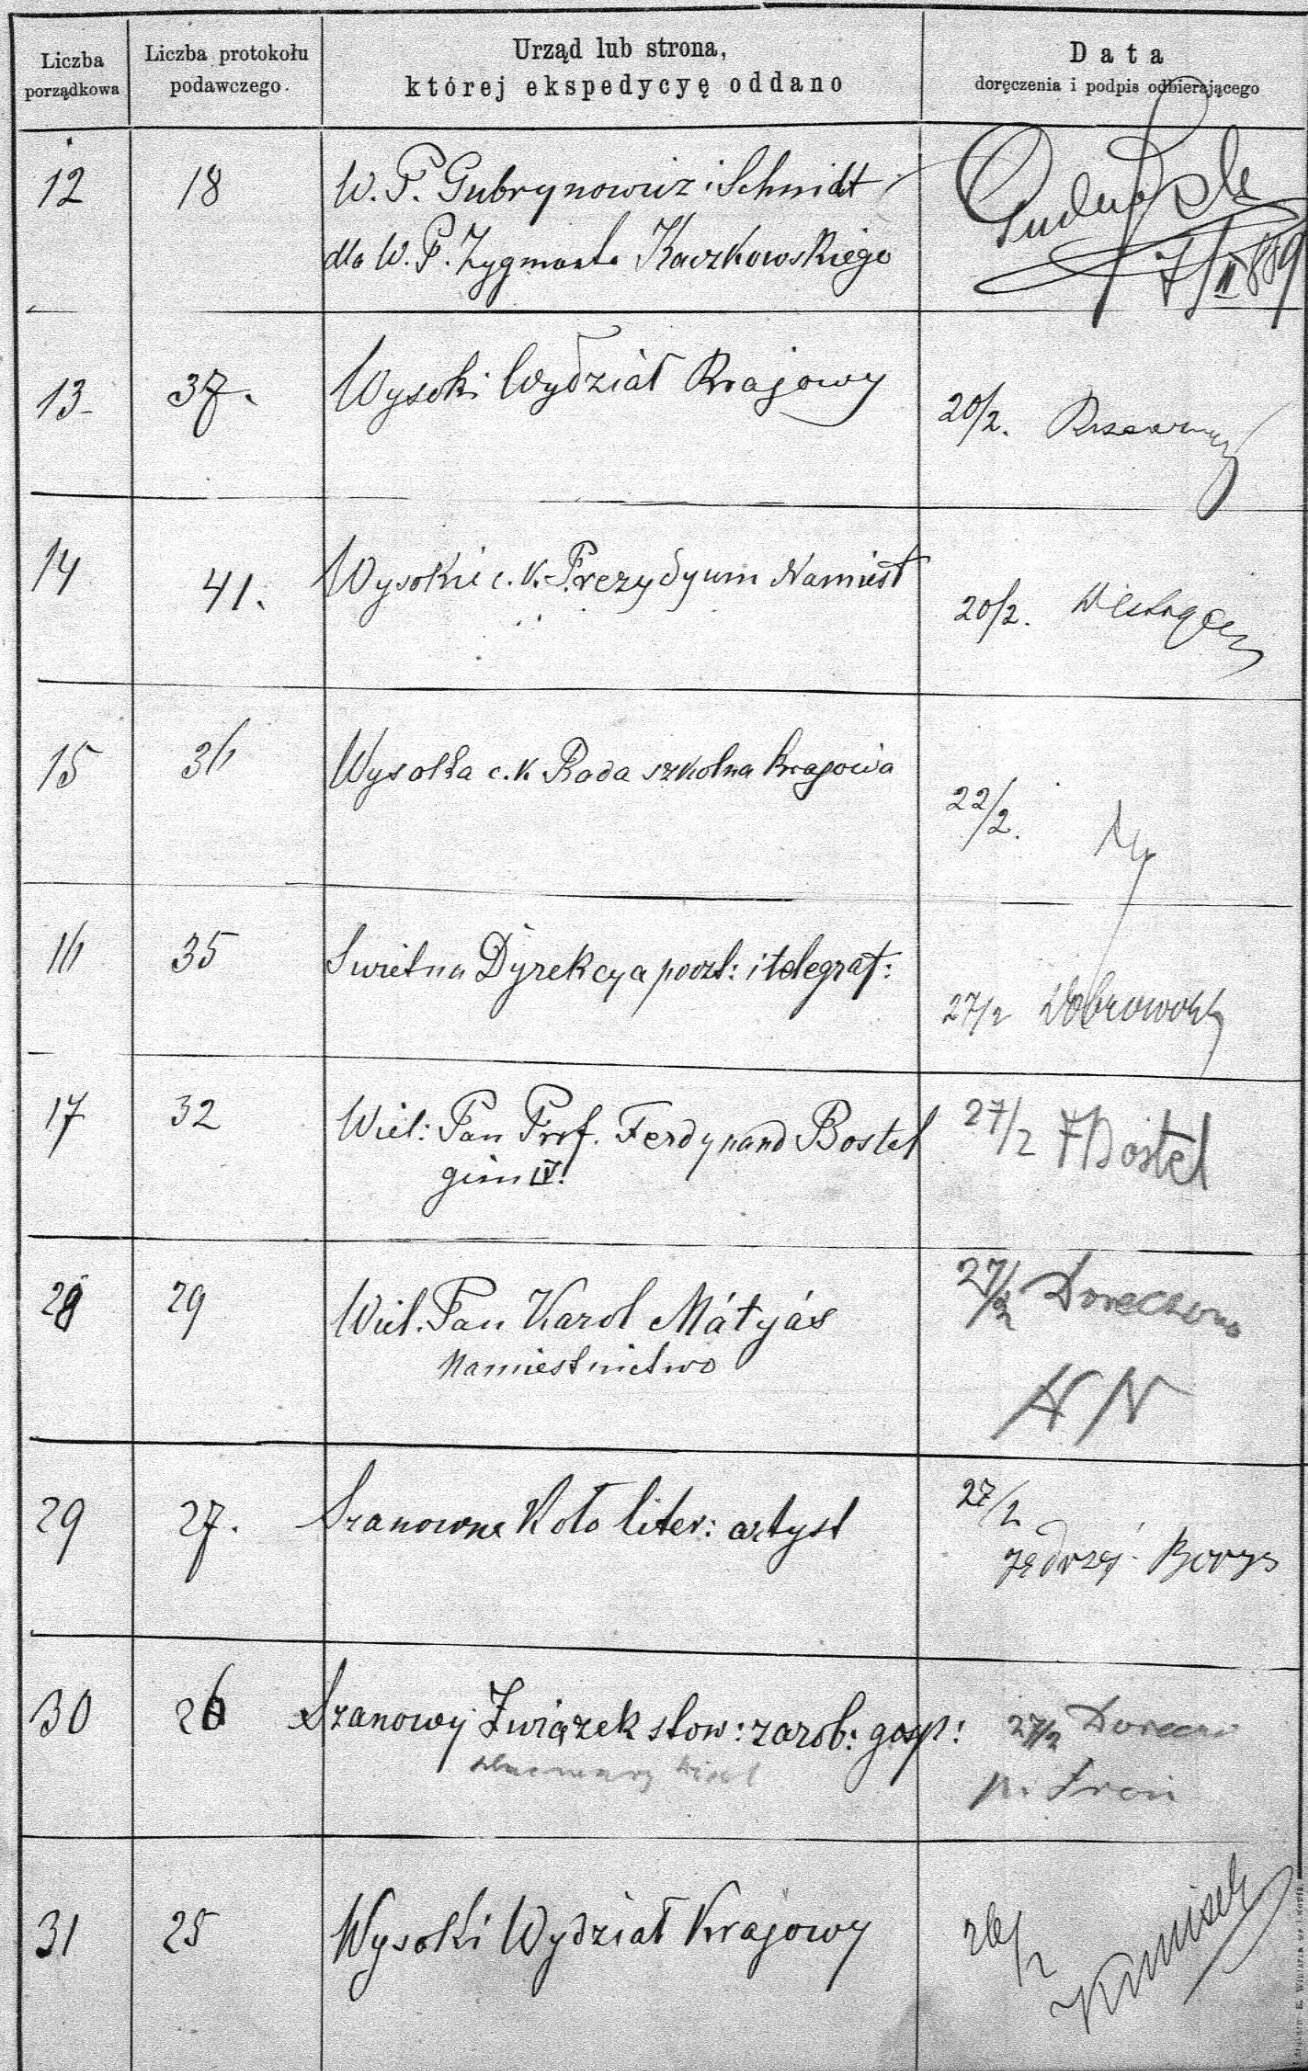 Liczba porządkowa
Liczba protokołu podawczego.
Urząd lub strona, której ekspedycyę oddano
Data doręczenia i podpis odbierającego
12 18 W. P. Gubrynowicz i Schmidt
dla W. P. Zygmunta Kaczkowskiego 7/II 889
13 37. Wysoki Wydział Krajowy 20/2.
14 41. Wysokie c. k. Prezydyum Namiest 20/2.
15 36 Wysoka c. k. Rada szkolna krajowa 22/2.
16 35 Swietna Dyrekcya poczt: i telegraf: 27/2
17 32 Wiel: Pan Prof. Ferdynand Bostel 27/2 F Bostel
gimn IV.
28 29 Wiel. Pan Karol Mátyás 27/2 Doreczono
Namiestnictwo
N N
29 27. Szanowne Koło liter: artyst 27/2
Jędrzej Borys
30 26 Szanowy Związek stow: zarob: gosp: 27/2
31 25 Wysoki Wydział Krajowy 26/2